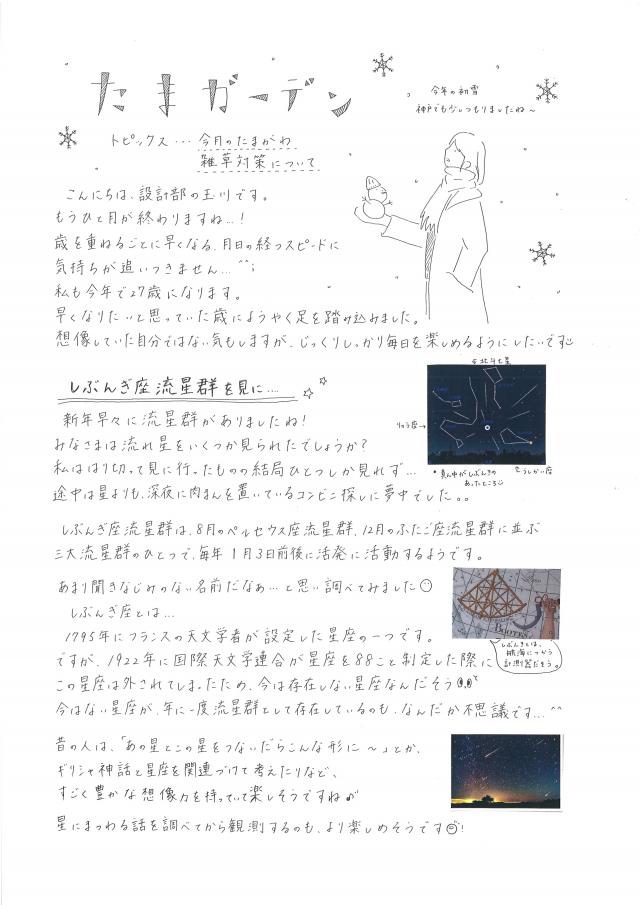 たまガーデン
今年の初雪
神戸でも少しつもりましたね～
トピックス… 今月のたまがわ
雑草対策について
こんにちは、設計部の玉川です。
もうひと月が終わりますね…！
歳を重ねるごとに早くなる、月日の経つスピードに
気持ちが追いつきません…^^;
私も今年で27歳になります。
早くなりたいと思っていた歳にようやく足を踏み込みました。
想像していた自分ではない気もしますが、じっくりしっかり毎日を楽しめるようにしたいです
しぶんぎ座流星群を見に….
☆北斗七星
りゅう座→
真ん中がしぶんぎの
あったところ
うしかい座
新年早々に流星群がありましたね！
みなさまは流れ星をいくつか見られたでしょうか？
私ははり切って見に行ったものの結局ひとつしか見れず…
途中は星よりも、深夜に肉まんを置いているコンビニ探しに夢中でした。。
しぶんぎ座流星群は、8月のペルセウス座流星群、12月のふたご座流星群に並ぶ
三大流星群のひとつで、毎年1月3日前後に活発に活動するようです。
あまり聞きなじみのない名前だなぁ…と思い調べてみました
しぶんぎ座とは…
1795年にフランスの天文学者が設定した星座の一つです。
ですが、1922年に国際天文学連合が星座を88こと制定した際に
この星座は外されてしまったため、今は存在しない星座なんだそう
今はない星座が、年に一度流星群として存在しているのも、なんだか不思議です…^^
BOOTES
しぶんぎとは、
航海につかう
計測器だそう。
昔の人は、「あの星とこの星をつないだらこんな形に～」とか、
ギリシャ神話と星座を関連づけて考えたりなど、
すごく豊かな想像力を持っていて楽しそうですね♪
星にまつわる話を調べてから観測するのも、より楽しめそうです！